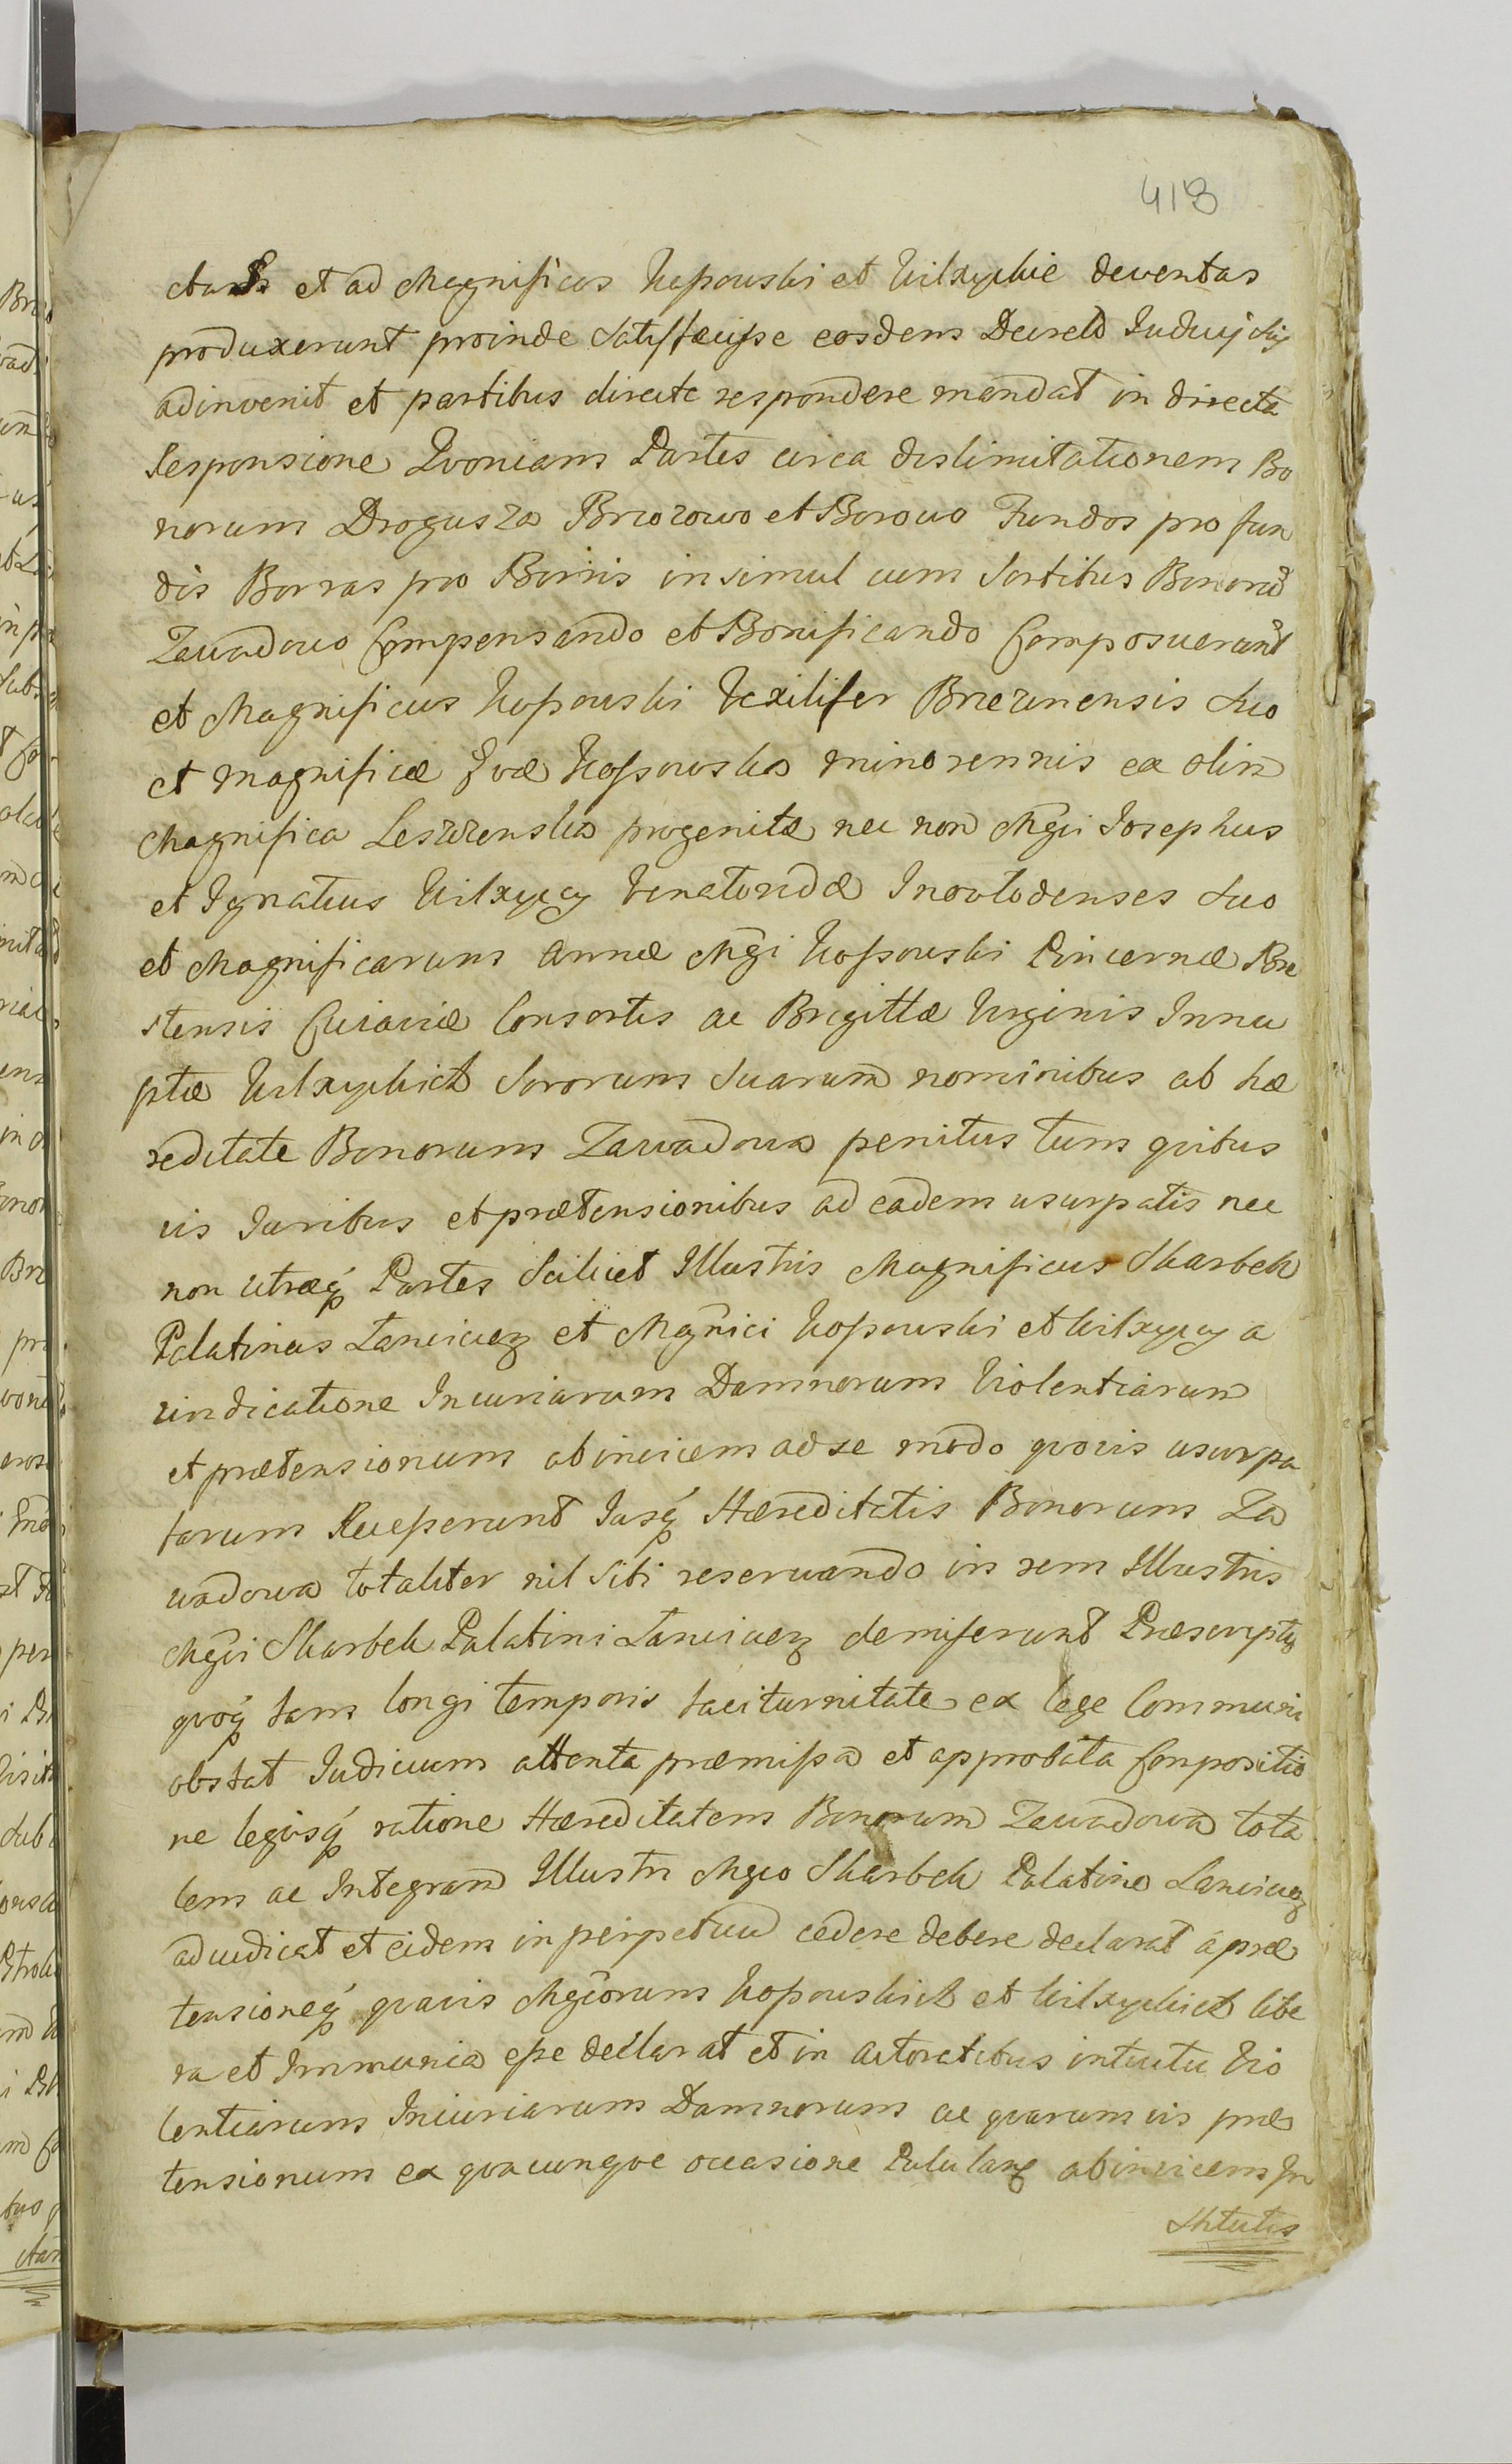 418
et ad Magnificos Kossowski et Wilxyckie deventas
produxerunt proinde satisfecisse eosdem Decreto Iudicij sui
adinvenit et partibus directe respondere mandat in directa
Responsione Qvoniam Partes circa dislimitationem Bo
norum Drogusza Brzozowo et Borowo Fundos pro fun
dis Borras pro Borris insimul cum Sortibus Bonorū
Zawadowo Compensando et Bonificando Composuerunt
et Magnificus Kossowski Vexilifer Brzezinensis suo
et Magnificæ Evæ Kossowska minorennis ex olim
Magnifica Leszczenska progenitæ nec non Mgci Josephus
et Ignatius Wilxyccy Venatoridæ Inovlodenses suo
et Magnificarum Annæ Mgci Kossowski Pincernæ Bre
stensis Cuiaviæ Consortis ac Brigittæ Virginis Innu
ptæ Wilxyckich Sororum Suarum nominibus ab hæ
reditate Bonorum Zawadowa penitus tum qvibus
vis Iuribus et prætensionibus ad eadem usurpatis nec
non utræq̃ Partes Scilicet Illustris Magnificus Skarbek
Palatinus Lanciciez et Mgnici Kossowski et Wilxyccy a
vindicatione Iniuriarum Damnorum Violentiarum
et prætensionum abinvicem ad se modo qvovis usurpa
tarum Recesserunt Iusq̃ Hæreditatis Bonorum Za
wadowa totaliter nil sibi reservando in rem Illustris
Mgci Skarbek Palatini Lanciciez demiserunt
qvoq̃ tam longi temporis taciturnitate ex lege Communi
obstat Iudicium attenta præmissa et approbata Compositio
ne legisq̃ ratione Hæreditatem Bonorum Zawadowa tota
lem ac Integram Illustri Mgco Skarbek Palatino Lanciciez
adiudicat et eidem in perpetuum cedere debere declarat á præ
tensioneq̃ qvavis Mgcorum Kossowskich et Wilxyckich libe
ra et Immunia esse declarat et in actoratibus intuitu Vio
lentiarum Iniuriarum Damnorum ac qvarumvis præ
tensionum ex qvacunqve occasione abinvicem In
stitutis